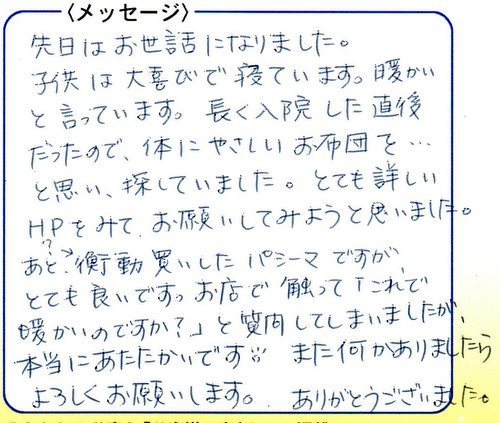 〈メッセージ〉
先日はお世話になりました。
子供は大喜びで寝ています。暖かい
と言っています。長く入院した直後
だったので、体にやさしいお布団を…
と思い、探していました。とても詳しい
HPをみて、お願いしてみようと思いました。
あと、?衝動買いしたパシーマですが、
とても良いです。お店で触って「これで
暖かいのですか?」と質問してしまいましたが、
本当にあたたかいです!! また何かありましたら
よろしくお願いします。 ありがとうございました。